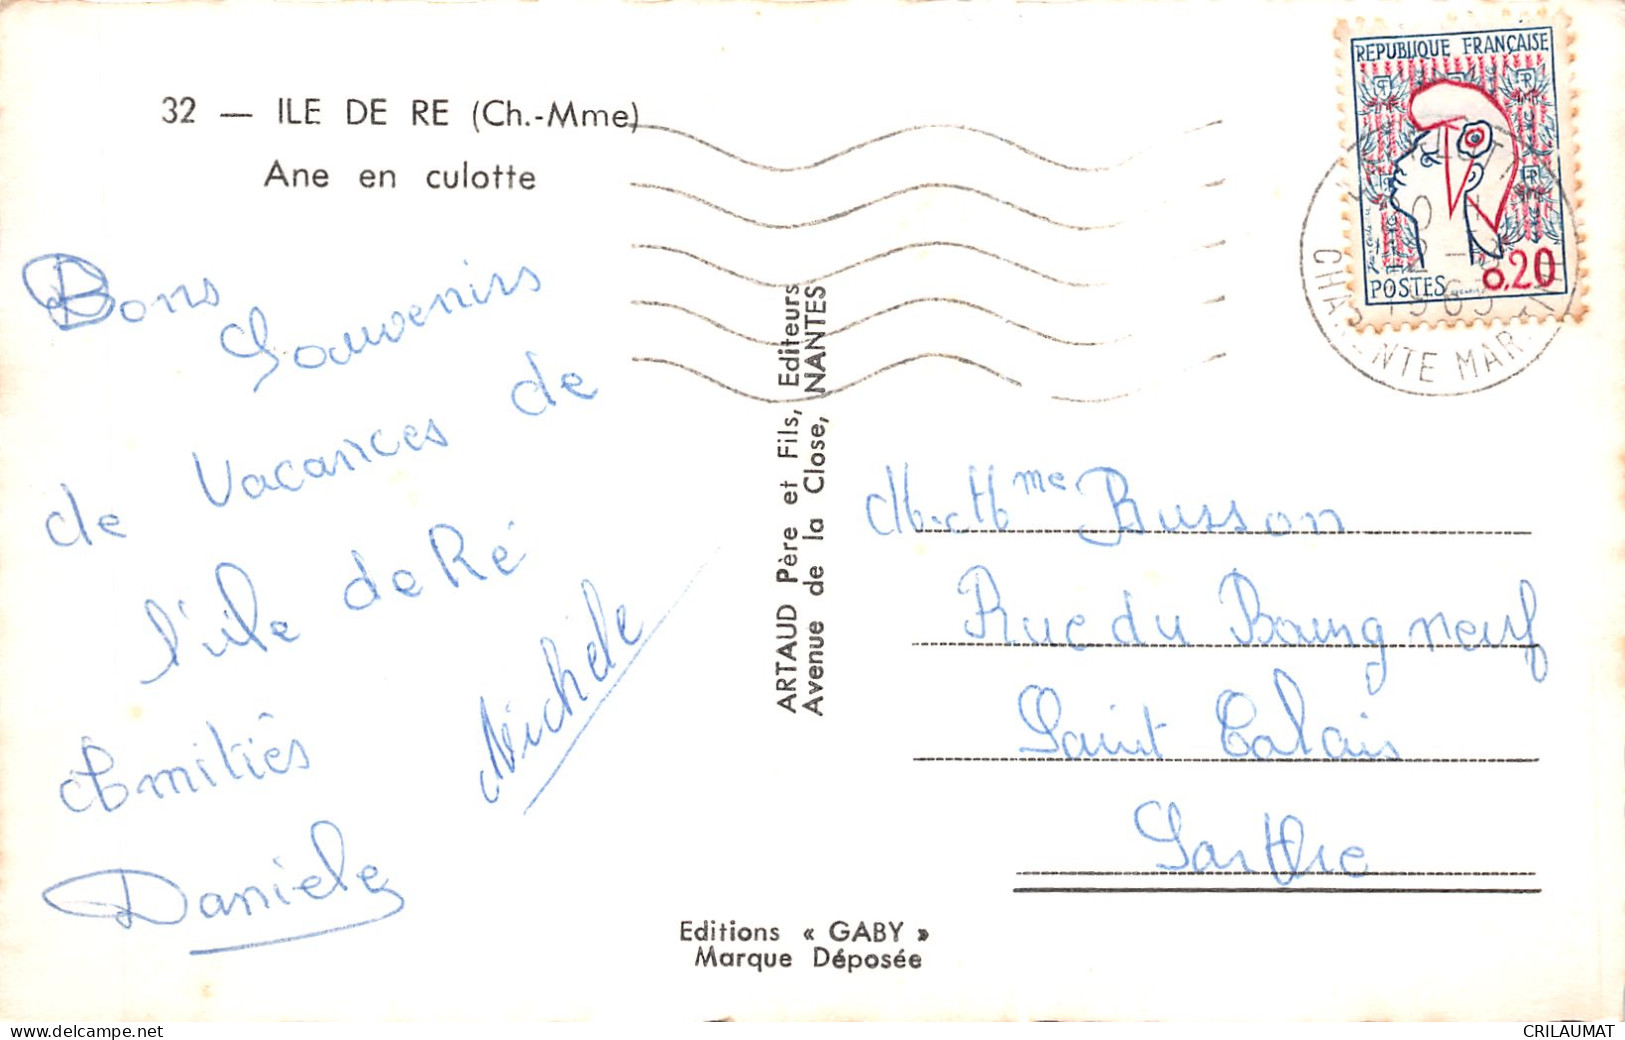 32 — ILE DE RE (Ch.-Mme)
Ane en culotte
Bons
Souvenirs
de Vacances de
l'île de Ré
Amitiés
Michèle
Danièle
ARTAUD Père et Fils, Editeurs
Avenue de la Close, NANTES
Editions « GABY »
Marque Déposée
REPUBLIQUE FRANÇAISE
POSTES 0,20
CHA NTE MAR
M. Mme Busson
Rue du Bourg neuf
Saint Calais
Sarthe
delcampe.net
CRILAUMAT